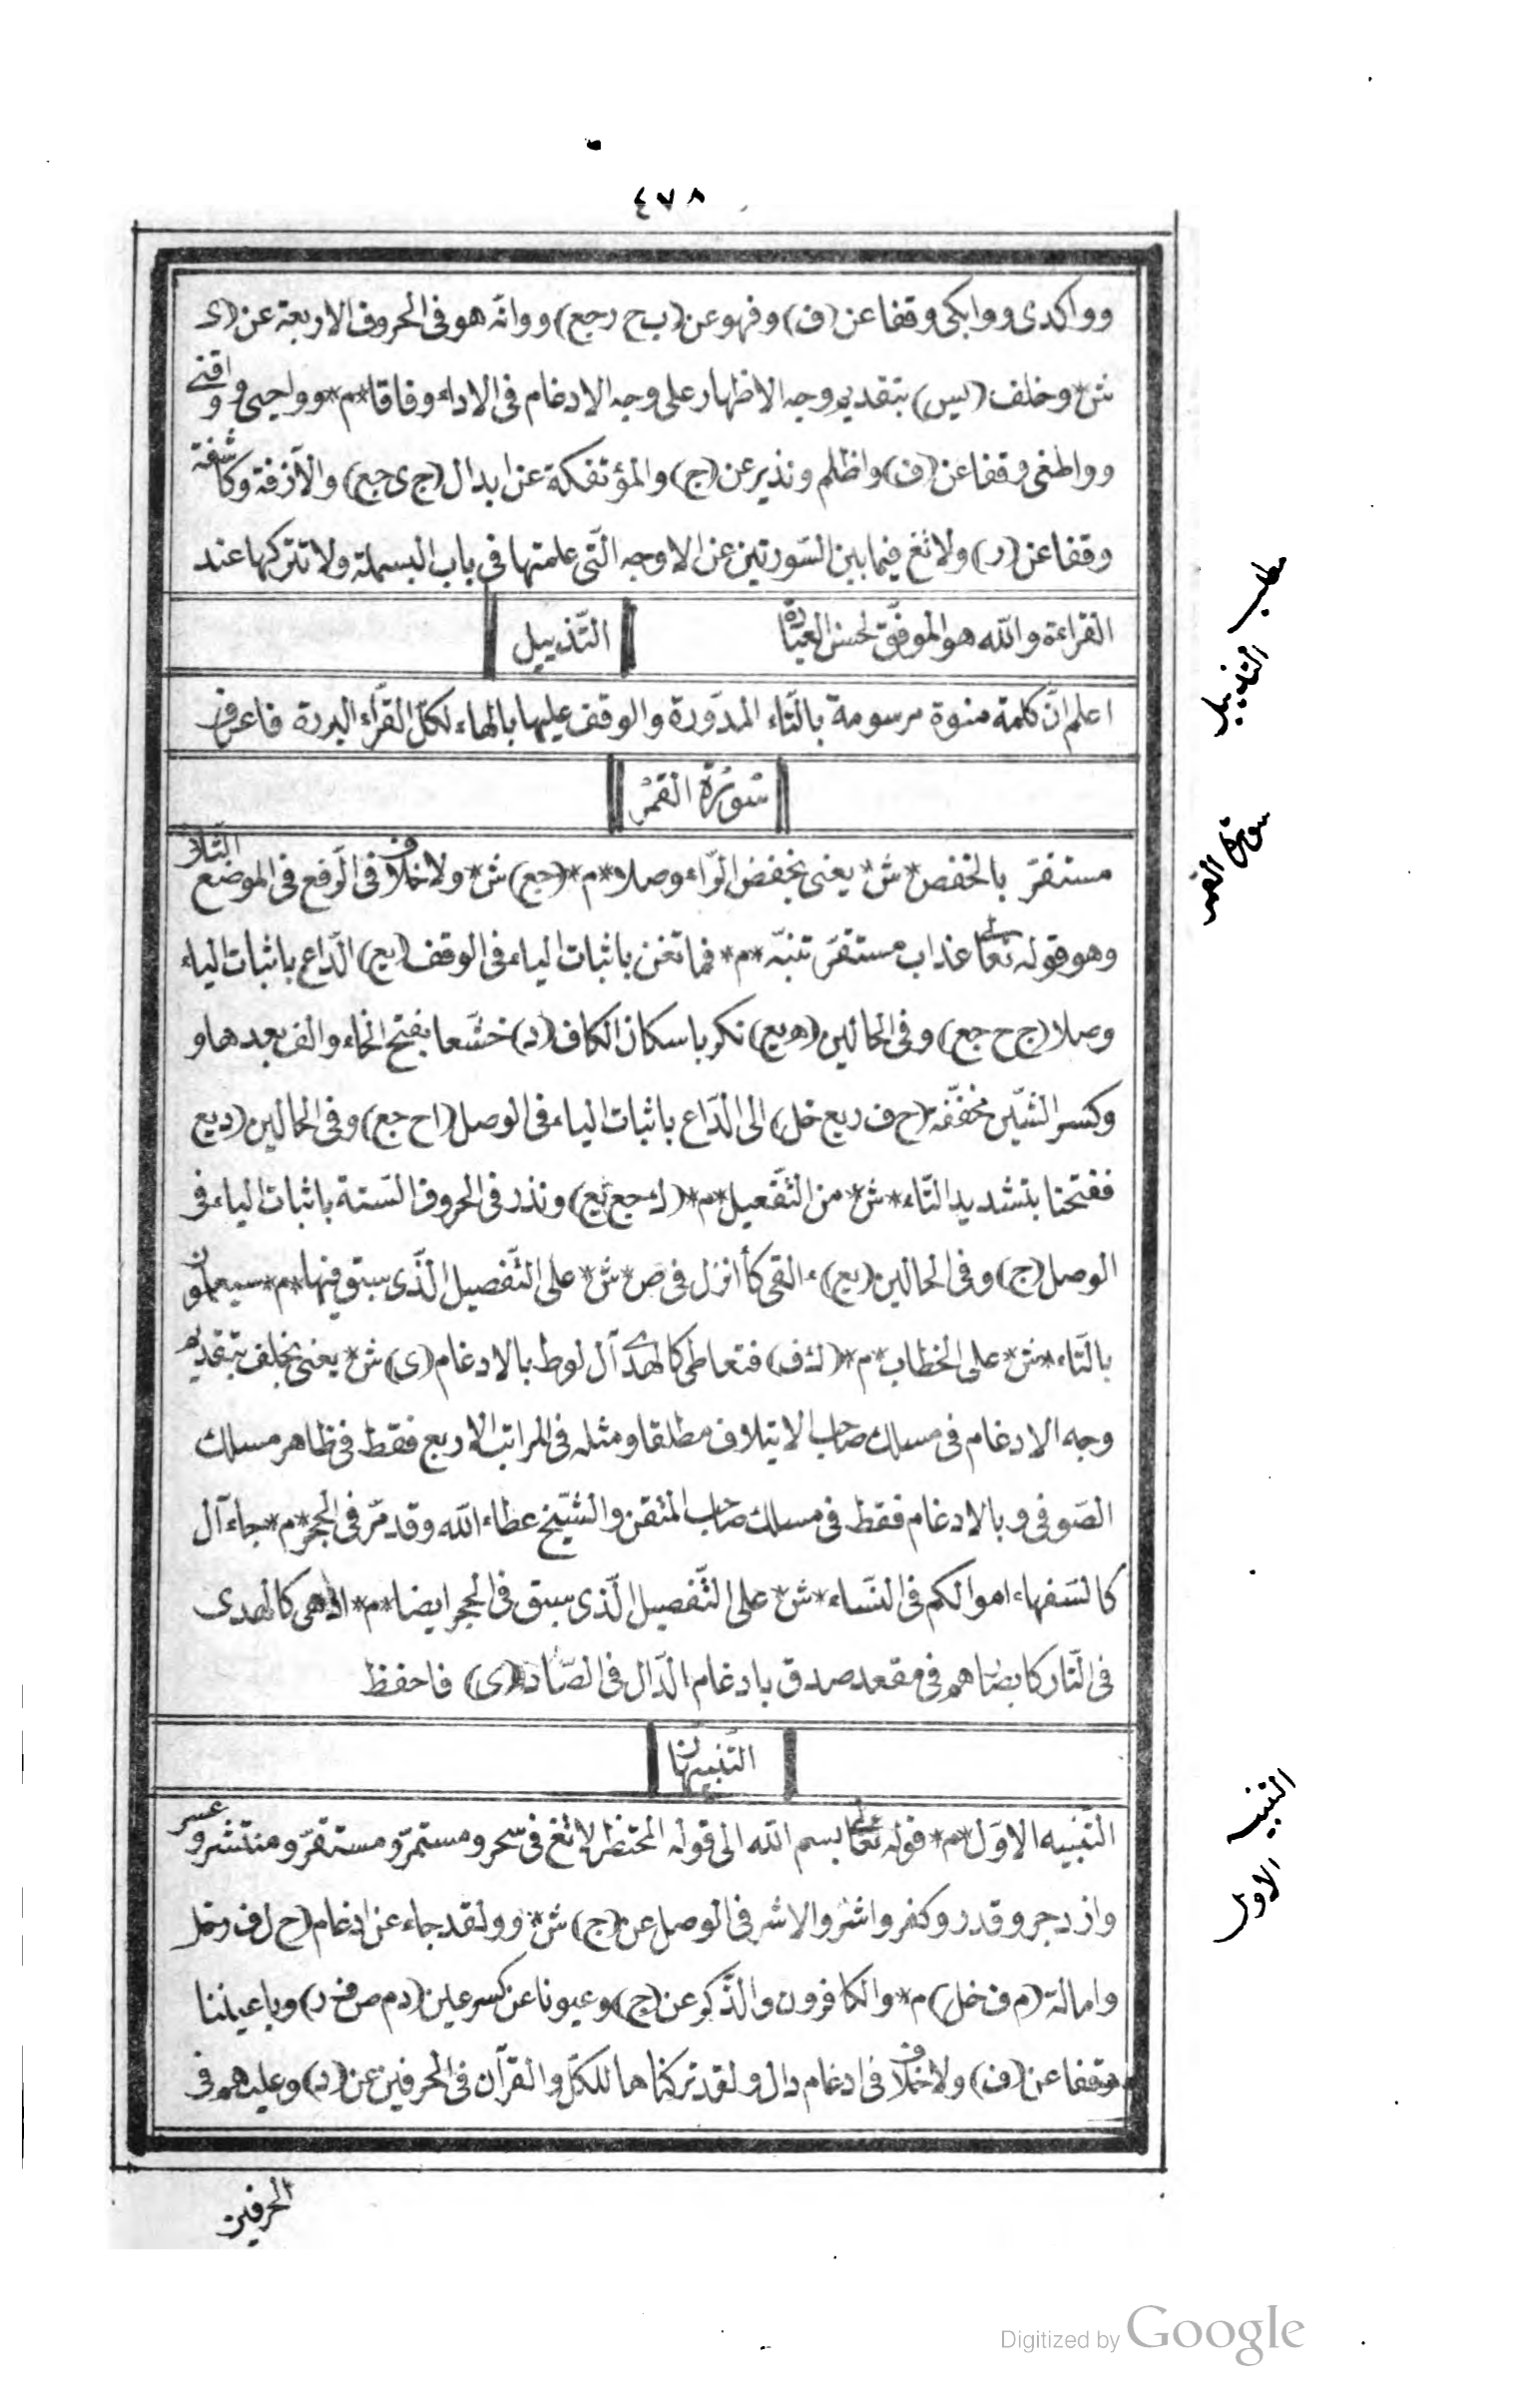 ٤٧٨
وواكدى ووابكى وقفا عن (ف) وفهو عن (ب ح ر جع) ووانّه هو فى الحروف الاربعة عن (ى
ش* وخلف (يس) بتقديم وجه الاظهار على وجه الادغام فى الاداء وفاقا *م* وواحيى و واقنى
وواطغى وقفا عن (ف) واظلم ونذير عن (ج) والمؤتفكة عن ابدال (ج ى جع) والآزفة وكاشفة
وقفا عن (ر) ولا تغ فيما بين السّورتين عن الاوجه الّتى علمتها فى باب البسملة ولا تتركها عند
القراءة والله هو الموفّق لحسن العبارة
التّذييل
اعلم انّ كلمة منوة مرسومة بالتّاء المدوّرة والوقف عليها بالهاء لكلّ القرّاء البررة فاعرف
سورة القمر
مستقرّ بالخفض *ش* يعنى بخفض الرّاء وصلا *م* (جع) ش* ولا خلاف فى الرّفع فى الموضع الثّانى
وهو قوله تعالى عذاب مستقرّ تنبّه *م* فما تغن باثبات الياء فى الوقف (يع) الدّاع باثبات الياء
وصلا (ج ح جع) وفى الحالين (ه يع) نكر باسكان الكاف (د) خشّعا بفتح الخاء والف بعدها و
وكسر الشّين مخفّفة (ح ف ر يع خل) الى الدّاع باثبات الياء فى الوصل (ا ح جع) وفى الحالين (د يع
ففتحنا بتشديد التّاء *ش* من التّفعيل *م* (ك جع يع) ونذر فى الحروف السّتة باثبات الياء فى
الوصل (ج) وفى الحالين (يع) ءالقى كأانزل فى ص *ش* على التّفصيل الّذى سبق فيها *م* سيعلمون
بالتّاء *ش* على الخطاب *م* (ك ف) فتعاطى كالهدى آل لوط بالادغام (ى) ش* يعنى بخلف بتقديم
وجه الادغام فى مسلك صاحب الايتلاف مطلقا ومثله فى المراتب الاربع فقط فى ظاهر مسلك
الصّوفى وبالادغام فقط فى مسلك صاحب المتقن والشّيخ عطاء الله وقد مرّ فى الحجر *م* جاء آل
كالسّفهاء اموالكم فى النّساء *ش* على التّفصيل الّذى سبق فى الحجر ايضا *م* ادهى كالهدى
فى النّار كابصاهم فى مقعد صدق بادغام الدّال فى الصّاد (ى) فاحفظ
التّنبيهان
التّنبيه الاوّل *م* قوله تعالى بسم الله الى قوله المحتظر لا تغ فى سحر ومستمرّ ومستقرّ ومنتشر وعسر
وازدجر وقدر وكفر واشر والاشر فى الوصل عن (ج) ش* وولقد جاء عن ادغام (ح ل ف ر خل
وامالة (م ف خل) م* والكافرون والذّكر عن (ج) وعيونا عن كسر عين (د م ص ف ر) وباعيننا
وقفا عن (ف) ولا خلاف فى ادغام دال ولقد تركناها للكلّ والقرآن فى الحرفين عن (د) وعليهم فى
الحرفين
مطلب التذييل
سورة القمر
التنبيه الاول
Digitized by Google